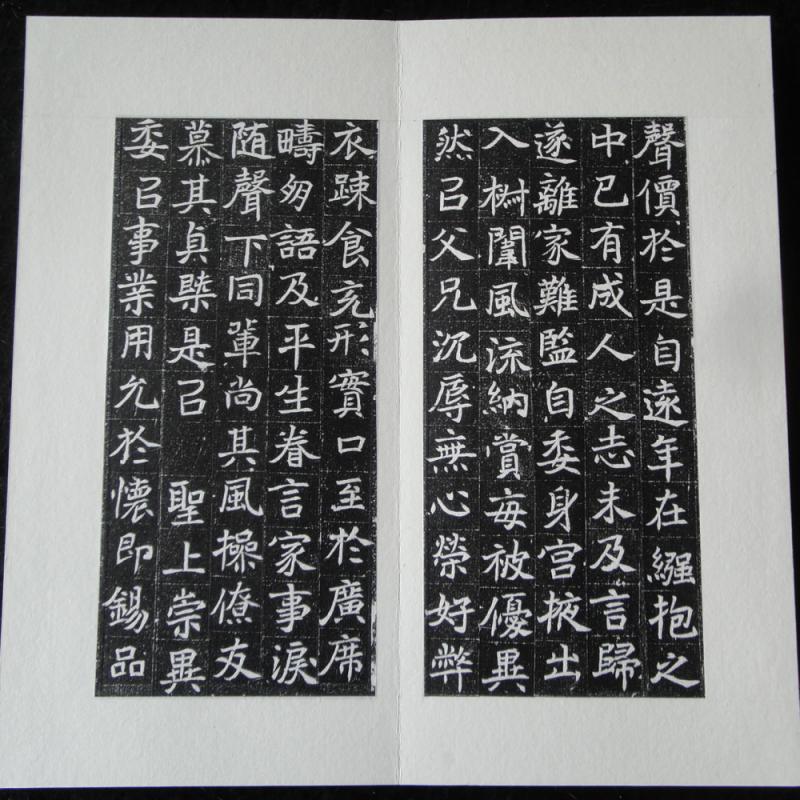 聲價於是自遠年在繦抱之
中已有成人之志未及言歸
遂離家難監自委身宮掖出
入椒闈風流納賞每被優異
然㠯父兄沉辱無心榮好弊
衣踈食充形實口至於廣席
疇朋語及平生眷言家事淚
随聲下同輩尚其風操僚友
慕其貞槩是㠯 聖上崇異
委㠯事業用允於懷即錫品